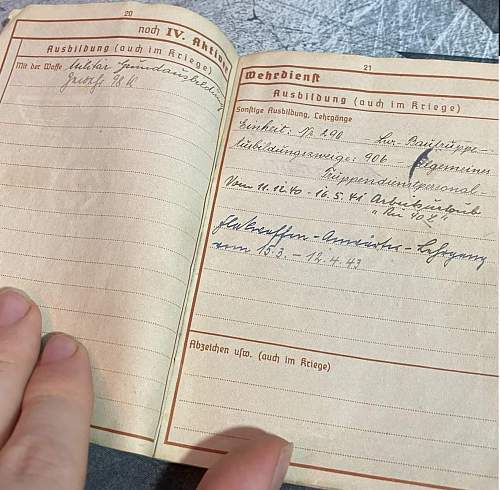 20
noch IV. Aktiver
Ausbildung (auch im Kriege)
Mit der Waffe Militär Grundausbildung
98 K
21
Wehrdienst
Ausbildung (auch im Kriege)
Sonstige Ausbildung, Lehrgänge
Einheit: Nr 290 Lw. Bautruppe-
Ausbildungszweige: 906 - Allgemeines
Truppendienstpersonal
Vom 11.12.40 - 16.5.41 Arbeitsurlaub
Flakwaffen-Anwärter-Lehrgang
vom 15.3. - 12.4.43
Abzeichen usw. (auch im Kriege)